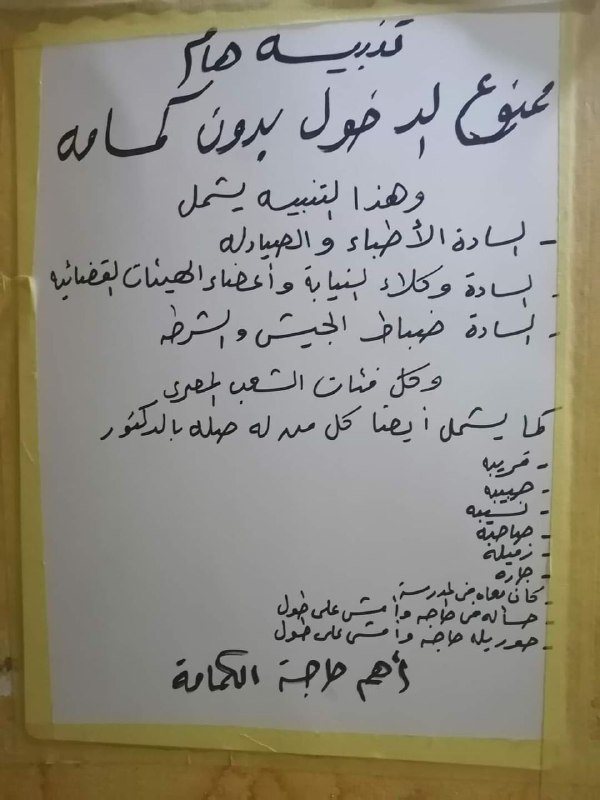 تنبيه هام
ممنوع الدخول بدون كمامه
وهذا التنبيه يشمل
- السادة الأطباء والصيادله
- السادة وكلاء النيابة وأعضاء الهيئات القضائيه
- السادة ضباط الجيش والشرطه
وكل فئات الشعب المصرى
كما يشمل أيضا كل من له صله بالدكتور
- قريبه
- حبيبه
- نسيبه
- صاحبه
- زميله
- جاره
- كان معاه فى المدرسة
- حسأله فى حاجه وأمشى على طول
- حوريله حاجه وأمشى على طول
أهم حاجة الكمامة